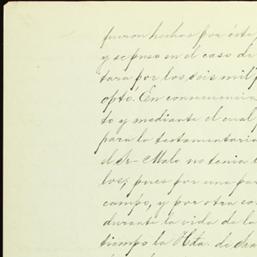 fueron hechas por éste
y se puso en el caso de
tara por los seis mil p
optó. En consecuencia
to y mediante el cual
para la testamentaria
el Sr. Malo no tenia
los; pues por una par
campo, y por otra co
durante la vida de la
tiempo la Hta. de